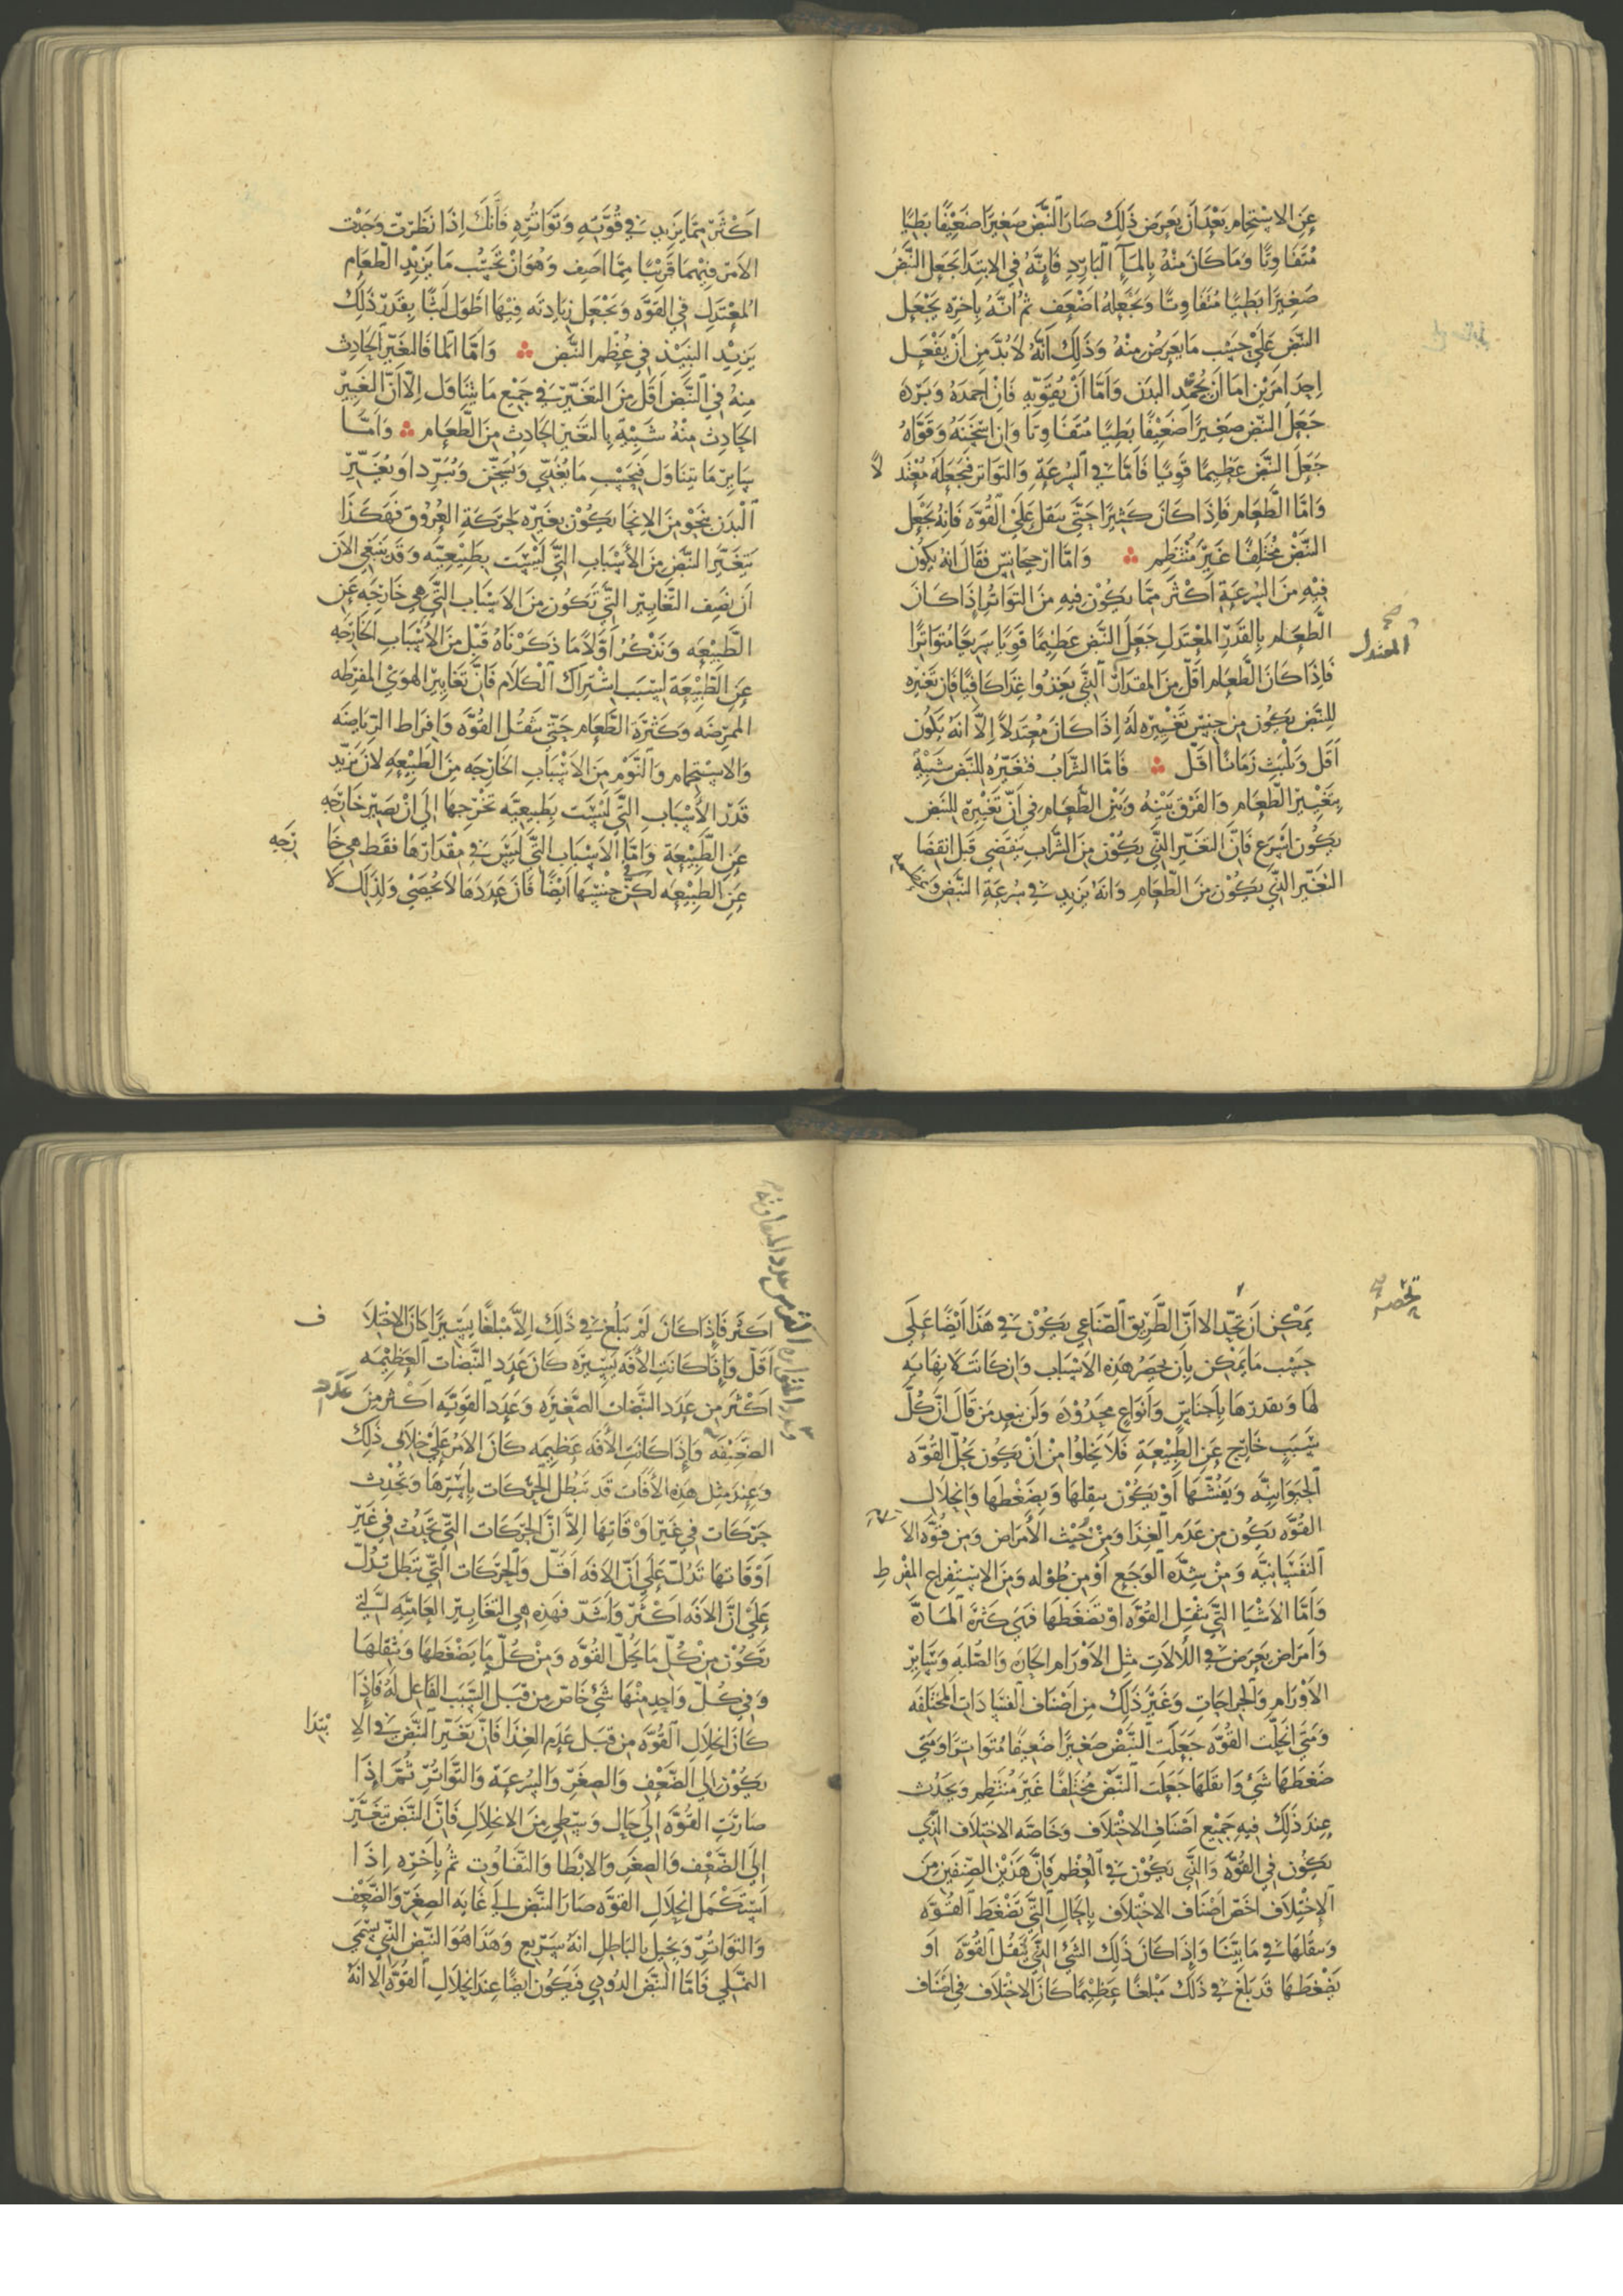 عَنِ الاسْتِحْمَامِ بَعْدَ اَنْ يَعْرِضَ ذَلِكَ صَارَ النَّبْضُ صَغِيْرًا ضَعِيْفًا بَطِيًا
مُتَفَاوِتًا وَمَا كَانَ مِنْهُ بِالمَآءِ البَارِدِ فَاِنَّهُ فِي الاِبْتِدَا يَجْعَلُ النَّبْضَ
صَغِيْرًا بَطِيًا مُتَفَاوِتًا وَيَجْعَلُهُ اَضْعَفَ ثُمَّ انَّهُ بِاَخرِهِ يَجْعَلُ
النَّبْضَ عَلَي حَسَبِ مَا يَعْرِضُ مِنْهُ وَذَلِكَ اَنَّهُ لاَ بُدَّ مِنْ اَنْ يَفْعَلَ
اِحدَ امرَيْنِ امَا اَنْ يُخْمِدَ البَدَنَ وَاَمَّا اَنْ يُقَوِّيهِ فَاِنْ اَخمَدَهُ وَبَرَّدَهُ
جَعَلَ النَّبْضَ صَغِيْرًا ضَعِيْفًا بَطِيًا مُتَفَاوِتًا وَاِنْ اَسْخَنَهُ وَقَوَّاهُ
جَعَلَ النَّبْضَ عَظِيمًا قَوِيًا فَاَمَّا في السُرْعَةِ وَالتَوَاتر فَجَعَلَهُ مُعْتَدِلاً
وَاَمَّا الطَّعَام فَاِذَا كَانَ كَثِيْرًا حَتَّي يثقلَ عَلَيْ القُوَّه فَاِنَّهُ يَجْعَل
النَّبْضَ مُخْتَلِفًا غَيْرَ مُنْتَظِمٍ وَامَّا ارجيجَانس فقَالَ انَهُ يكُون
فِيْهِ مِنَ السُرعَةِ اَكْثَر مِمَّا يكُوْن فيهِ مِنَ التوَاتُر اِذَا كَانَ
الطَّعَام بِالقَدْرِ المعْتَدِلِ جَعَلَ النَّبْضَ عَظِيْمًا قَوِيًا سَرِيعًا مُتَوَاترًا
المعتدل
فَاِذَا كَانَ الطَّعَام اَقَلَّ مِنَ المِقدَارِ الذَّي يَغْذُوا غِذَا كَافِيًا فَاِن تَغيّره
لِلنَّبْض يَكُون مِن جِنْسِ تَغْييِرِه لَهُ اِذَا كَانَ مُعْتَدلاً اِلاَّ انَهُ يَكُون
اَقَل وَيَلْبَثُ زَمَانًا اَقَلَّ فَامَّا الشَّرَابُ فتغيّره للنَبَض شَبِيْهٌ
بِتَغْيِيْرِ الطَّعَام وَالفَرْق بَيْنَهُ وَبَيْنَ الطَّعَام في اَنَّ تَغْيِيْرَهُ للنبَض
يكُونُ اَسْرَعَ فَاِنَّ التغيِّر الذَّي يكُوْن مِنَ الشَّرَاب يَنقَضِي قَبل انقضَا
التغيّر الذَّي يكُوْن مِنَ الطَّعَامِ وَانَهُ يَزيد في سُرْعَةِ النَّبْض وَعظمه
اَكْثَر مِمَّا يَزِيد في قُوَّتِهِ وَتَوَاتُرِهِ فَاَنَّكَ اِذَا نَظَرْتَ وَجَدْتَ
الاَمْرَ فِيْهِمَا قَرِيْبًا مِمَّا اصِف وَهُوَ انْ بحَسَب مَا يَزيْد الطعَام
المُعْتَدِل في القوَّه وَيَجْعَل زيادَته فِيْهَا اَطْوَل لَبثًا بِقَدَر ذَلِكَ
يَزيْد النبيْذ في عُظم النَّبْض وَاَمَّا المَا فَالتغيّر الحَادث
مِنهُ في النَّبَض اَقَلّ مِنَ التَغيّر في جَمِيْع مَا يتنَاوَل اِلاّ اَنّ التغيير
الحَادِث مِنْهُ شَبِيْهٌ بِالتغَيّر الحَادِث مِنَ الطَّعَام وَاَمَّا
سَايِر مَا يتنَاوَل فَبِحَسَب مَا يُغَذّي وَيُسَخّن وَيُبَرّد اَو يُغَيّر
البدَن بنَحْو مِنَ الانحَا يكُوْن تغَيّره لحَركَةِ العُرُوق فَهَكَذَا
يَتغَيَّر النَّبْض مِنَ الأسْبَابِ التَّي لَيْسَت بِطَبِيْعيّه وَقَد يَنبَغِي الاَن
اَن نَصِفَ التَّغَايِيْر التَّي تَكُون مِنَ الاَسْبَاب التَّي هِي خَارِجَه عَن
الطَّبِيْعَه وَنَذْكُر اَوَّلاً مَا ذَكَرْنَاهُ قَبْل مِنَ الأسْبَابِ الخَارِجَه
عَن الطَبِيْعَة بسَبَب اشْتِرَاك الكلاَم فَاِنَّ تَغَايير الهَوَي المفرِطَه
الممرِضَه وَكَثْرَة الطَّعَام حَتَّي يثقل القُوَّه وَافرَاط الرّيَاضَه
وَالاسْتِحْمَام وَالنَّوْم مِنَ الاَسْبَابِ الخَارِجَه مِنَ الطَبِيْعَه لانَ تزيّد
قَدْر الأسْبَابِ التَّي لَيْسَت بِطَبِيعيّه تخْرجهَا اِلَي اَنْ تَصِير خَارجَه
عَن الطَّبِيْعَة وَامَّا الاَسْبَابُ التَّي لَيسَ في مِقْدَارهَا فقَط هِي خَارِجَه
عَن الطبيْعَه لَكِن في جِنْسِهَا اَيْضًا فَاَنَ عَدَدهَا لاَ يُحْصَي وَلِذَلِكَ لاَ
يَمْكِنُ اَن تحَدّ الا اَنَّ الطَرِيْقَ الصّنَاعِي يكُوْن في هَذَا اَيْضًا عَلَي
حسَب مَا يَمْكِن بِاَن يحصَر هَذِه الاسْبَاب وَان كَانَتَ لاَ نهَايَه
لهَا وَنقدرهَا بِاَجنَاسٍ وَاَنوَاعٍ مَحدُوْدَه وَلَن يبعد مَن قَالَ انَّ كُلَّ
سَبَبٍ خَارِج عَنِ الطَبِيْعَةِ فَلاَ يَخلُوا مِنْ اَنْ يَكُون يحُلّ القُوَّه
الحَيوَانيَّه وَيَفُشّهَا اَوْ يَكُوْن يثقلهَا وَيضغَطهَا وَانحِلاَل
القُوَّه يَكُون مِن عَدَم الغِذَا وَمِنْ خُبْث الأَمرَاض وَمِن قُوَّة الاَلام
النَفسَانِيَّه وَمِنْ شِدَّه الوَجَع اَوْ مِن طُوْله وَمِنَ الاسْتِفْراغ المُفْرِطِ
وَاَمَّا الاَشْيَا التَّي تثقِل القُوَّه اوْ تَضْغَطهَا فَهي كَثْرة المَادَّه
وَاَمرَاض تعرَض في الالاَتِ مثِل الاَوْرَام الحَارَه وَالصُلبَه وَسَايِرُ
الاَوْرَام وَالجراجَاتِ وَغَيْر ذَلِكَ مِن اصْنَاف الفسَادَات المُخْتَلفَه
وَمَتَي انحَلّت القُوَّه جَعَلَت النَّبْض صَغيرًا ضَعيفًا مُتَواتِرًا وَمَتي
ضَغَطَهَا شَيْ وَاثقَلهَا جَعَلَت النَّبْض مُختَلفًا غَيْر مُنْتَظِم وَيَحدُث
عِندَ ذَلِكَ فيهِ جَمِيْع اَصْنَافِ الاخْتِلاَف وَخَاصَّه الاختِلاَف الذَّي
يكُون في القُوَّه وَالذَّي يكُوْن في العُظْم فَانَّ هَذَيْن الصِّنفَيْنِ مِنَ
الإخْتِلاَف اخَصّ اَصْنَاف الاختِلاَف بالحَالِ التَّي تَضغَط القُوَّه
وَيثقُلهَا في مَا بَيَّنَا وَاِذَا كَانَ ذَلِك الشَي الذَّي يُثقُل القُوَّه اَو
يَضْغطهَا قَد بَلغَ في ذَلَكَ مَبْلغًا عَظيْمًا كَانَ الاخْتِلاَف في اصْنَاف
اَكثَر فَاِذَا كَانَ لَمْ يَبلُغ في ذَلِكَ اِلاَّ مَبْلغًا يَسِيْرًا كَانَ الاخْتِلاَف
اَقَلّ وَاِذَا كَانَتِ الاُفَه يَسِيْرَه كَانَ عَدَدُ النَّبضَات العَظِيْمَه
اَكثَر مِن عَدَدِ النَّبضات الصَّغيَره وَعَدَد القَوِيّه اَكثَر مِنَ عَدَد
الضَعِيْفَه وَاِذَا كَانَتِ الاُفَه عَظيْمَه كَانَ الاَمْر عَلَي خِلاَف ذَلِكَ
وَعِندَ مِثل هَذِهِ الاُفَات قَد تبْطُل الحَرَكَات بِاَسْرِهَا وَتحْدِث
حَرَكَات في غَيْر اوْقَاتهَا اِلاَّ انَّ الحَرَكَات التَّي تحدُث في غَيْر
اَوْقَاتهَا تدُلّ عَلَي اَنّ الافَه اَقَلّ وَالحَرَكَات التَّي تبَطل تدُلّ
عَلَي انَّ الاَفَه اَكثَر وَاَشَدّ فَهَذِه هِي التَغَايير العَامّيّه التَّي
تَكُوْن مِن كُلّ مَا يَحُلّ القُوَّه وَمِنْ كُلّ مَا يَضْغَطهَا وَيُثْقلهَا
وَفي كُلّ وَاحِدٍ مِنْهَا شَيْ خَاصّ مِن قبَل السَّبَب الفَاعِل لهُ فَاِذَا
كَانَ انحِلاَل القُوَّه مِن قبَل عَدَم الغِذَا فَاِنَّ تَغَيّر النَّبْض في الاِبْتِدَا
يكُوْن اِلَي الضَّعْف وَالصِغَر وَالسُرعَة وَالتَّوَاتُر ثُمَّ اِذَا
صَارَت القُوَّه اِلَي حَال وَسْطي مِنَ الاِنحِلاَل فَاِنَّ النَّبْض يتَغَيَّر
اِلَي الضّعْف وَالصِغَر وَالابْطَا وَالتفَاوُت ثمُ بأخرِه اِذَا
استَكمَل انحِلاَل القوَّه صَارَ النَّبْض الي غَايَه الصغَر وَالضَّعْف
وَالتوَاتُر وَيخيل بالبَاطِل انهُ سَرِيع وَهَذَا هُوَ النّبْض الذَّي يسَمَّي
النَّمْلي فَامَّا النبَض الدُودي فَيَكُون ايضًا عِندَ انحِلاَل القُوَّه الا انَهُ